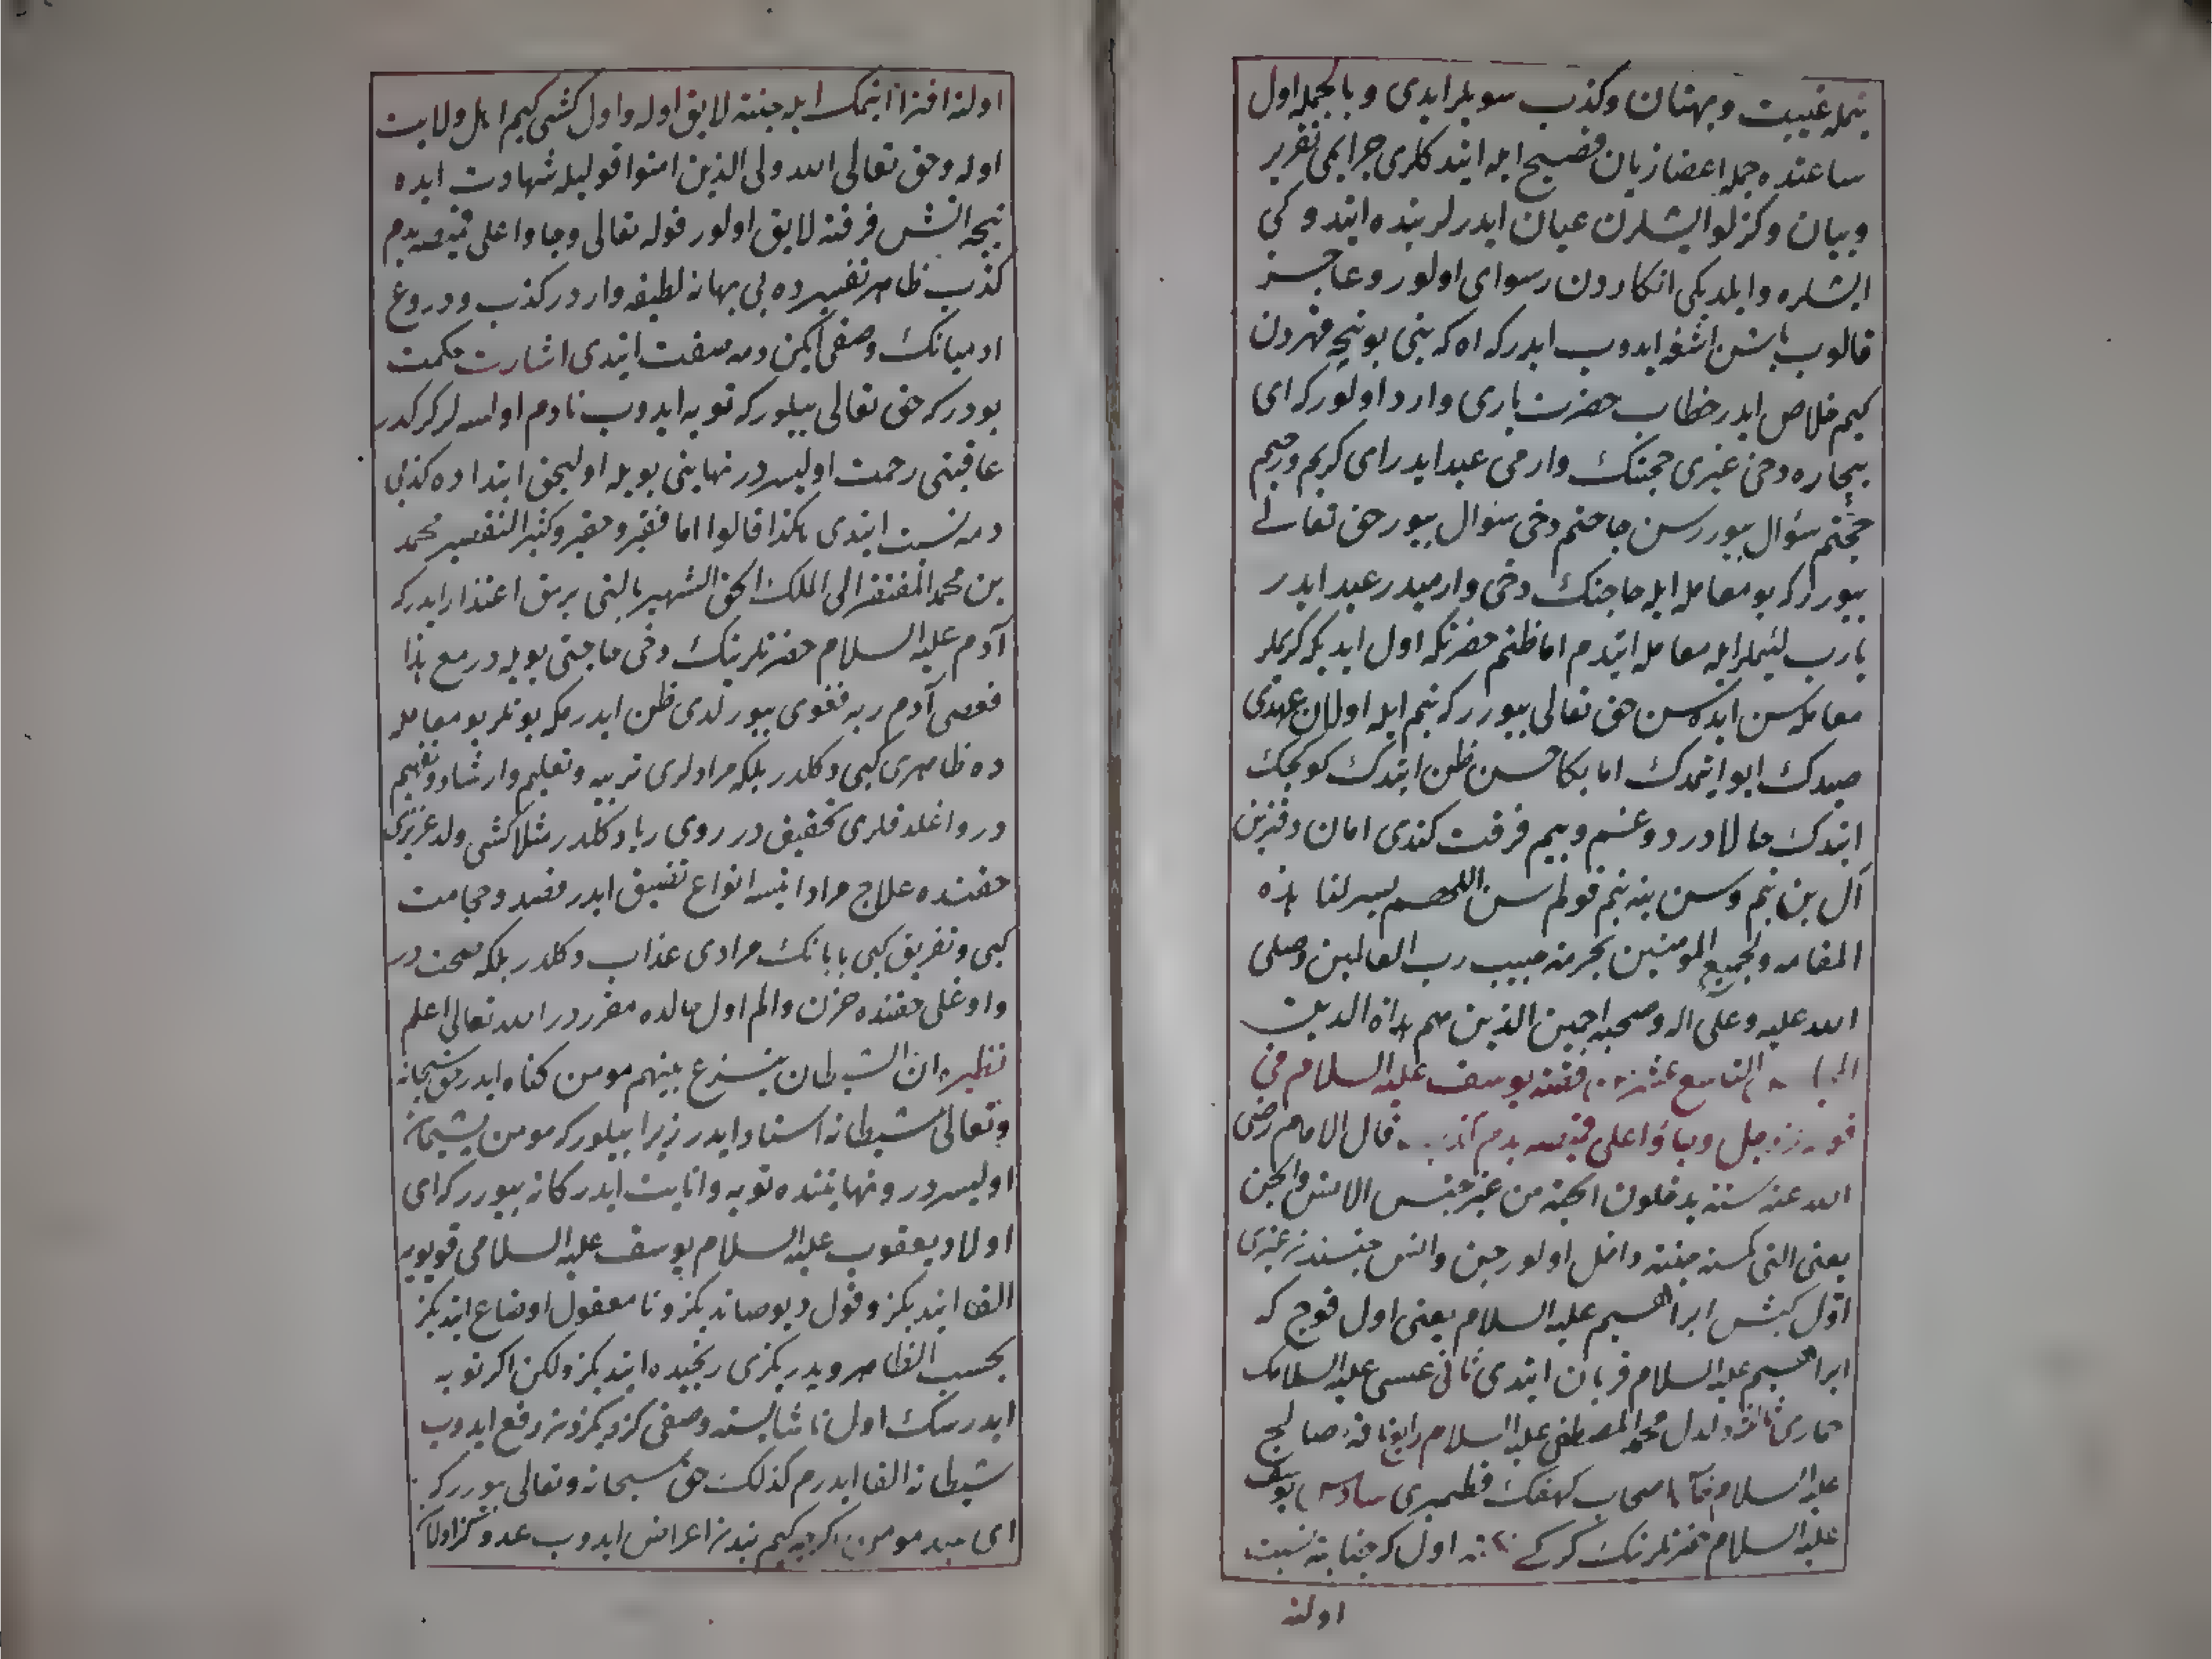 بنمله غیبت وبهتان وکذب سویلر ایدی وبالجمله اول
ساعتده جمله اعضا زبان فصیح ایله ایتدکلری جرایمی تقریر
وبیان وکزلو ایشلرن عیان ایدرلر بنده ایتدوکی
ایشلره وایلدیکی انکاردن رسوای اولور وعاجز
قالوب باشن اشغه ایدوب ایدرکه اه که بنی بونیجه قهردن
کیم خلاص ایدر خطاب حضرت باری وارد اولور که ای
بیچاره دخی غیری حجتک وارمی عبد ایدر ای کریم ورحیم
حجتم سؤال بیوررسن حاجتم دخی سؤال بیور حق تعالی
بیوررکه بو معامله ایله حاجتک دخی وارمیدر عبد ایدر
یارب لئیملر ایله معامله ایتدم اما ظنم حضرتکه اول ایدیکه کریملر
معامله سن ایده سن حق تعالی بیوررکه بنم ایله اولان عهدی
صیدک ایو ایتمدک اما بکا حسن ظن ایتدک کوکجک
ایتدک حالا درد وغم وبیم فرقت کتدی امان دفترین
آل بن بنم وسن ینه بنم قولمسن اللهم یسر لنا هذه
المقامه ولجمیع المومنین بحرمة حبیب رب العالمین وصلی
الله علیه وعلی اله وصحبه اجمعین الذین هم هداة الدین
التاسع عشر فتنه یوسف علیه السلام فی
قوله عزوجل وجاؤا علی قمیصه بدم کذب قال الامام رضی
الله عنه ستة یدخلون الجنة من غیر جنس الانس والجن
یعنی التی کسنه جنته داخل اولور جن وانس جنسندن غیری
اول کبش ابراهیم علیه السلام یعنی اول قوچ که
ابراهیم علیه السلام قربان ایتدی ثانی عیسی علیه السلامک
حماری ثالث دلدل محمد المصطفی علیه السلام رابع ناقه صالح
علیه السلام خامسا اصحاب کهفک قطمیری سادس یوسف
علیه السلام حضرتلرینک کرکی اول که جنابنه نسبت
اولنه
اولنه افترا ایتمک ایله جنته لایق اوله واول کشی کیم اهل ولایت
اوله وحق تعالی الله ولی الذین امنوا قولیله شهادت ایده
نیجه اتش فرقته لایق اولور قوله تعالی وجاوا علی قمیصه بدم
کذب ظاهر تفسیرده بی بهانه لطیفه واردر کذب ودروغ
ادمیانک وصفی ایکن دمه صفت ایتدی اشارت حکمت
بودرکه حق تعالی بیلورکه توبه ایدوب نادم اولسه لر کرکدر
عاقبتی رحمت اولیسردر نهایتی بویله اولیجق ابتداده کذبی
دمه نسبت ایتدی هکذا قالوا اما فقیر وحقیر وکثیر التقصیر محمد
بن محمد المفتقر الی الملک الحق الشهیر بالتی برمق اعتذار ایدرکه
آدم علیه السلام حضرتلرینک دخی حاجتی بویله در مع هذا
فعصی آدم ربه فغوی بیورلدی ظن ایدرمکه بونلر بو معامله
ده ظاهری کبی دکلدر بلکه مرادلری تربیه وتعلیم وارشاد وتفهیم
در واغلدقلری تحقیق در روی ریا دکلدر مثلا کشی ولد عزیزی
حقنده علاج مراد ایتسه انواع تضییق ایدر فصد وحجامت
کبی وتفریق کبی بابانک مرادی عذاب دکلدر بلکه صحت در
واوغلی حقنده حزن والم اول حالده مقرردر الله تعالی اعلم
نظیره ان الشیطان ینزغ بینهم مومن کناه ایدر حق سبحانه
وتعالی شیطانه اسناد ایدر زیرا بیلورکه مومن پشیمان
اولیسردر ونهایتنده توبه وانابت ایدر کانه بیوررکه ای
اولاد یعقوب علیه السلام یوسف علیه السلامی قویویه
القا ایتدیکز وقول دیو صاتدیکز ونامعقول اوضاع ایتدیکز
بحسب الظاهر وپدریکزی رنجیده ایتدیکز ولکن اکر توبه
ایدرسک اول ناشایسته وصفی کزدیکزدن رفع ایدوب
شیطانه القا ایدرم کذلک حق سبحانه وتعالی بیوررکه
ای عبد مومن اکرچه کیم بندن اعراض ایدوب عدوکز اولان